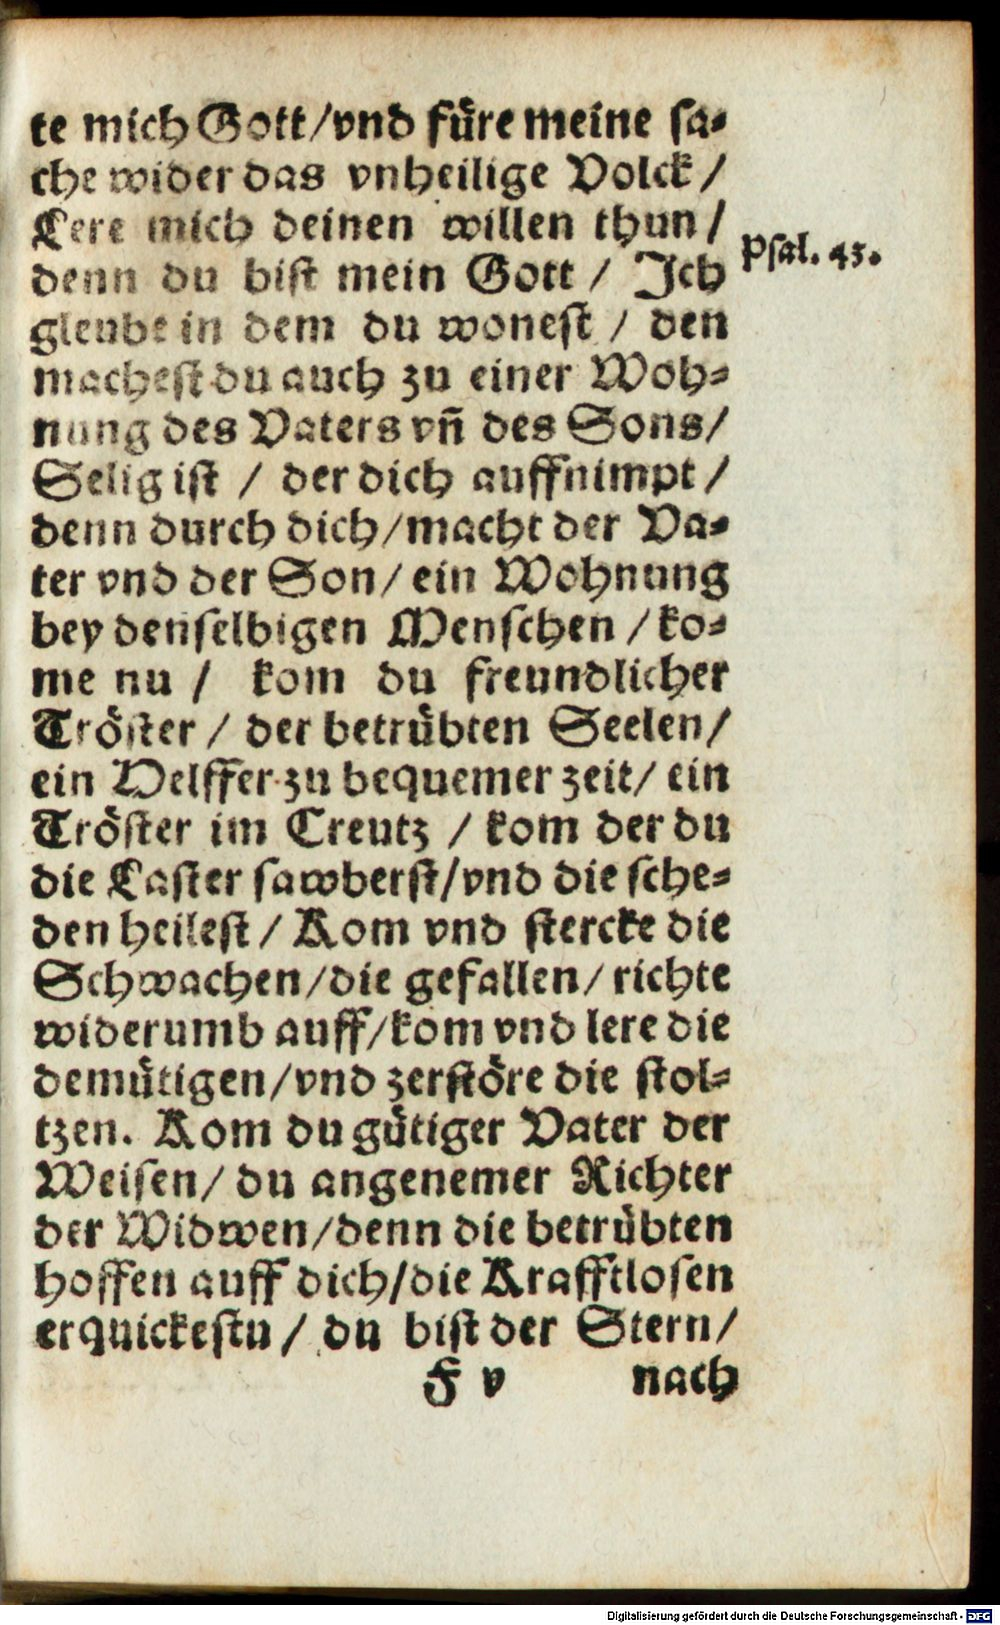 te mich Gott/vnd füre meine sa-
che wider das vnheilige Volck/
Lere mich deinen willen thun/
denn du bist mein Gott / Ich
Psal. 43.
gleube in dem du wonest / den
machest du auch zu einer Woh-
nung des Vaters vñ des Sons/
Selig ist / der dich auffnimpt/
denn durch dich/macht der Va-
ter vnd der Son/ ein Wohnung
bey denselbigen Menschen / ko-
me nu / kom du freundlicher
Tröster / der betrübten Seelen/
ein Helffer zu bequemer zeit/ ein
Tröster im Creutz / kom der du
die Laster sawberst/vnd die sche-
den heilest / Kom vnd stercke die
Schwachen/die gefallen/ richte
widerumb auff/kom vnd lere die
demütigen/vnd zerstöre die stol-
tzen. Kom du gütiger Vater der
Weisen/ du angenemer Richter
der Widwen/denn die betrübten
hoffen auff dich/die Krafftlosen
erquickestu / du bist der Stern/
F v nach
Digitalisierung gefördert durch die Deutsche Forschungsgemeinschaft - DFG